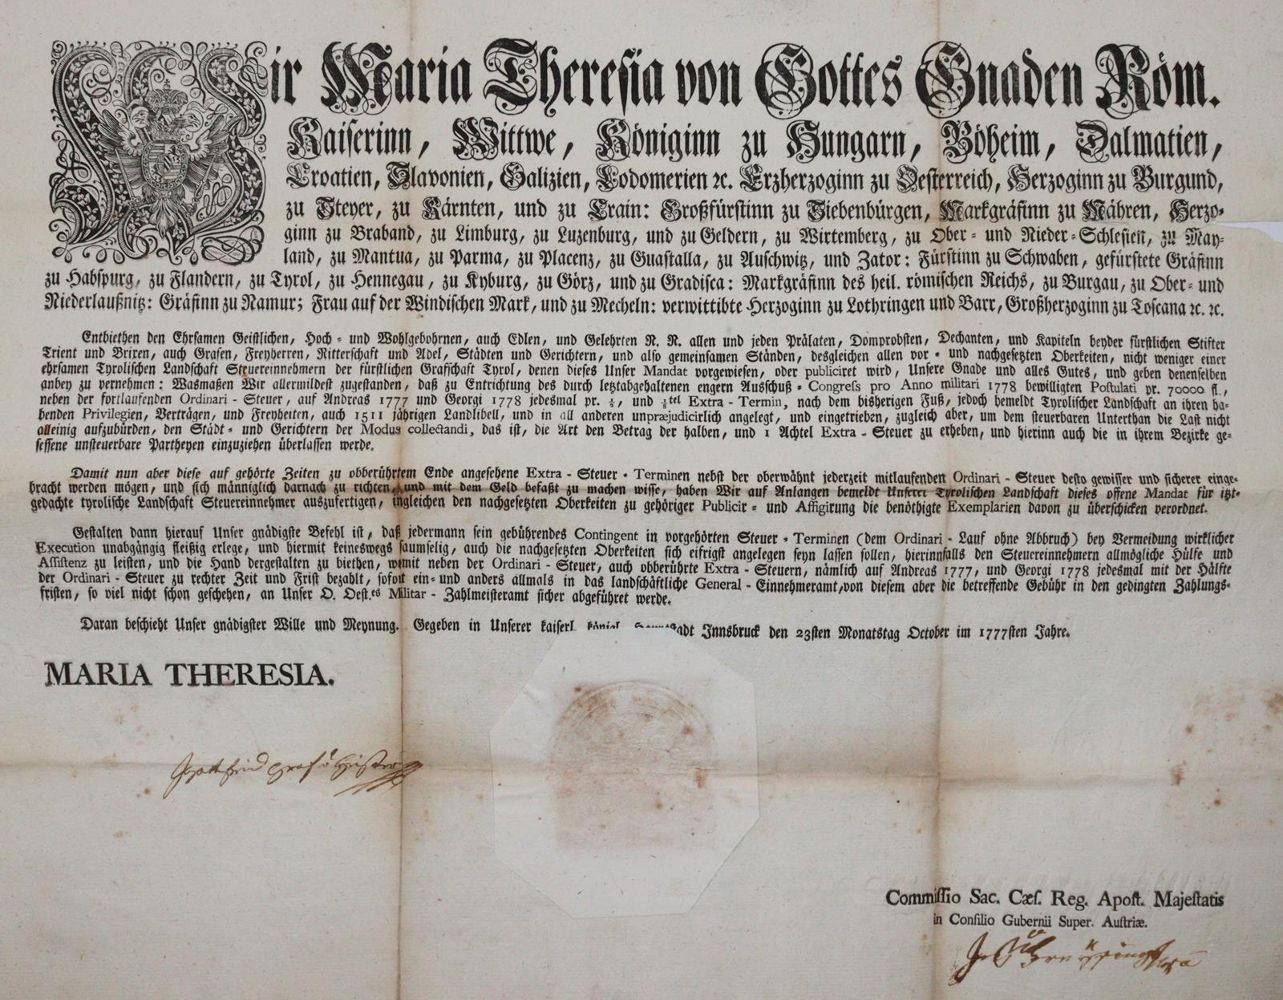 Wir Maria Theresia von Gottes Gnaden Röm.
Kaiserinn, Wittwe, Königinn zu Hungarn, Böheim, Dalmatien,
Croatien, Slavonien, Galizien, Lodomerien ꝛc. Erzherzoginn zu Oesterreich, Herzoginn zu Burgund,
zu Steyer, zu Kärnten, und zu Crain: Großfürstinn zu Siebenbürgen, Markgräfinn zu Mähren, Herzo-
ginn zu Braband, zu Limburg, zu Luzenburg, und zu Geldern, zu Wirtemberg, zu Ober- und Nieder-Schlesien, zu May-
land, zu Mantua, zu Parma, zu Placenz, zu Guastalla, zu Auschwitz, und Zator: Fürstinn zu Schwaben, gefürstete Gräfinn
zu Habspurg, zu Flandern, zu Tyrol, zu Hennegau, zu Kyburg, zu Görz, und zu Gradisca: Markgräfinn des heil. römischen Reichs, zu Burgau, zu Ober- und
Niederlaußnitz: Gräfinn zu Namur; Frau auf der Windischen Mark, und zu Mecheln: verwittibte Herzoginn zu Lothringen und Barr, Großherzoginn zu Toscana ꝛc. ꝛc.
Entbiethen den Ehrsamen Geistlichen, Hoch- und Wohlgebohrnen, auch Edlen, und Gelehrten N. N. allen und jeden Prälaten, Domprobsten, Dechanten, und Kapiteln beyder fürstlichen Stifter
Trient und Brixen, auch Grafen, Freyherren, Ritterschaft und Adel, Städten und Gerichtern, und also gemeinsamen Ständen, desgleichen allen vor- und nachgesetzten Oberkeiten, nicht weniger einer
ehrsamen Tyrolischen Landschaft Steuereinnehmern der fürstlichen Grafschaft Tyrol, denen dieses Unser Mandat vorgewiesen, oder publiciret wird, Unsere Gnade und alles Gutes, und geben denenselben
anbey zu vernehmen: Wasmaßen Wir allermildest zugestanden, daß zu Entrichtung des durch letztabgehaltenen engern Ausschuß-Congress pro Anno militari 1778 bewilligten Postulati pr. 70000 fl.,
neben der fortlaufenden Ordinari-Steuer, auf Andreas 1777 und Georgi 1778 jedesmal pr. ½, und ⅛tel Extra-Termin, nach dem bisherigen Fuß, jedoch bemeldt Tyrolischer Landschaft an ihren ha-
benden Privilegien, Verträgen, und Freyheiten, auch 1511 jährigen Landlibell, und in all anderen unpræjudicirlich angelegt, und eingetrieben, zugleich aber, um dem steuerbaren Unterthan die Last nicht
alleinig aufzubürden, den Städt- und Gerichtern der Modus collectandi, das ist, die Art den Betrag der halben, und 1 Achtel Extra-Steuer zu erheben, und hierinn auch die in ihrem Bezirke ge-
sessene unsteuerbare Partheyen einzuziehen überlassen werde.
Damit nun aber diese auf gehörte Zeiten zu obberührtem Ende angesehene Extra-Steuer-Terminen nebst der oberwähnt jederzeit mitlaufenden Ordinari-Steuer desto gewisser und sicherer einge-
bracht werden mögen, und sich männiglich darnach zu richten, und mit dem Geld befaßt zu machen wisse, haben Wir auf Anlangen bemeldt Unserer Tyrolischen Landschaft dieses offene Mandat für itzt-
gedachte tyrolische Landschaft Steuereinnehmer auszufertigen, ingleichen den nachgesetzten Oberkeiten zu gehöriger Publicir- und Affigirung die benöthigte Exemplarien davon zu überschicken verordnet.
Gestalten dann hierauf Unser gnädigste Befehl ist, daß jedermann sein gebührendes Contingent in vorgehörten Steuer-Terminen (dem Ordinari-Lauf ohne Abbruch) bey Vermeidung wirklicher
Execution unabgängig fleißig erlege, und hiermit keineswegs saumselig, auch die nachgesetzten Oberkeiten sich eifrigst angelegen seyn lassen sollen, hierinnfalls den Steuereinnehmern allmögliche Hülfe und
Assistenz zu leisten, und die Hand dergestalten zu biethen, womit neben der Ordinari-Steuer, auch obberührte Extra-Steuern, nämlich auf Andreas 1777, und Georgi 1778 jedesmal mit der Hälfte
der Ordinari-Steuer zu rechter Zeit und Frist bezahlt, sofort ein- und anders allmals in das landschäftliche General-Einnehmeramt, von diesem aber die betreffende Gebühr in den gedingten Zahlungs-
fristen, so viel nicht schon geschehen, an Unser O. Oest.es Militar-Zahlmeisteramt sicher abgeführet werde.
Daran beschieht Unser gnädigster Wille und Meynung. Gegeben in Unserer kaiserl. königl. Innsbruck den 23sten Monatstag October im 1777sten Jahre.
MARIA THERESIA.
Gottfrid Graf v Heister
Commissio Sac. Cæs. Reg. Apost. Majestatis
in Consilio Gubernii Super. Austriæ.